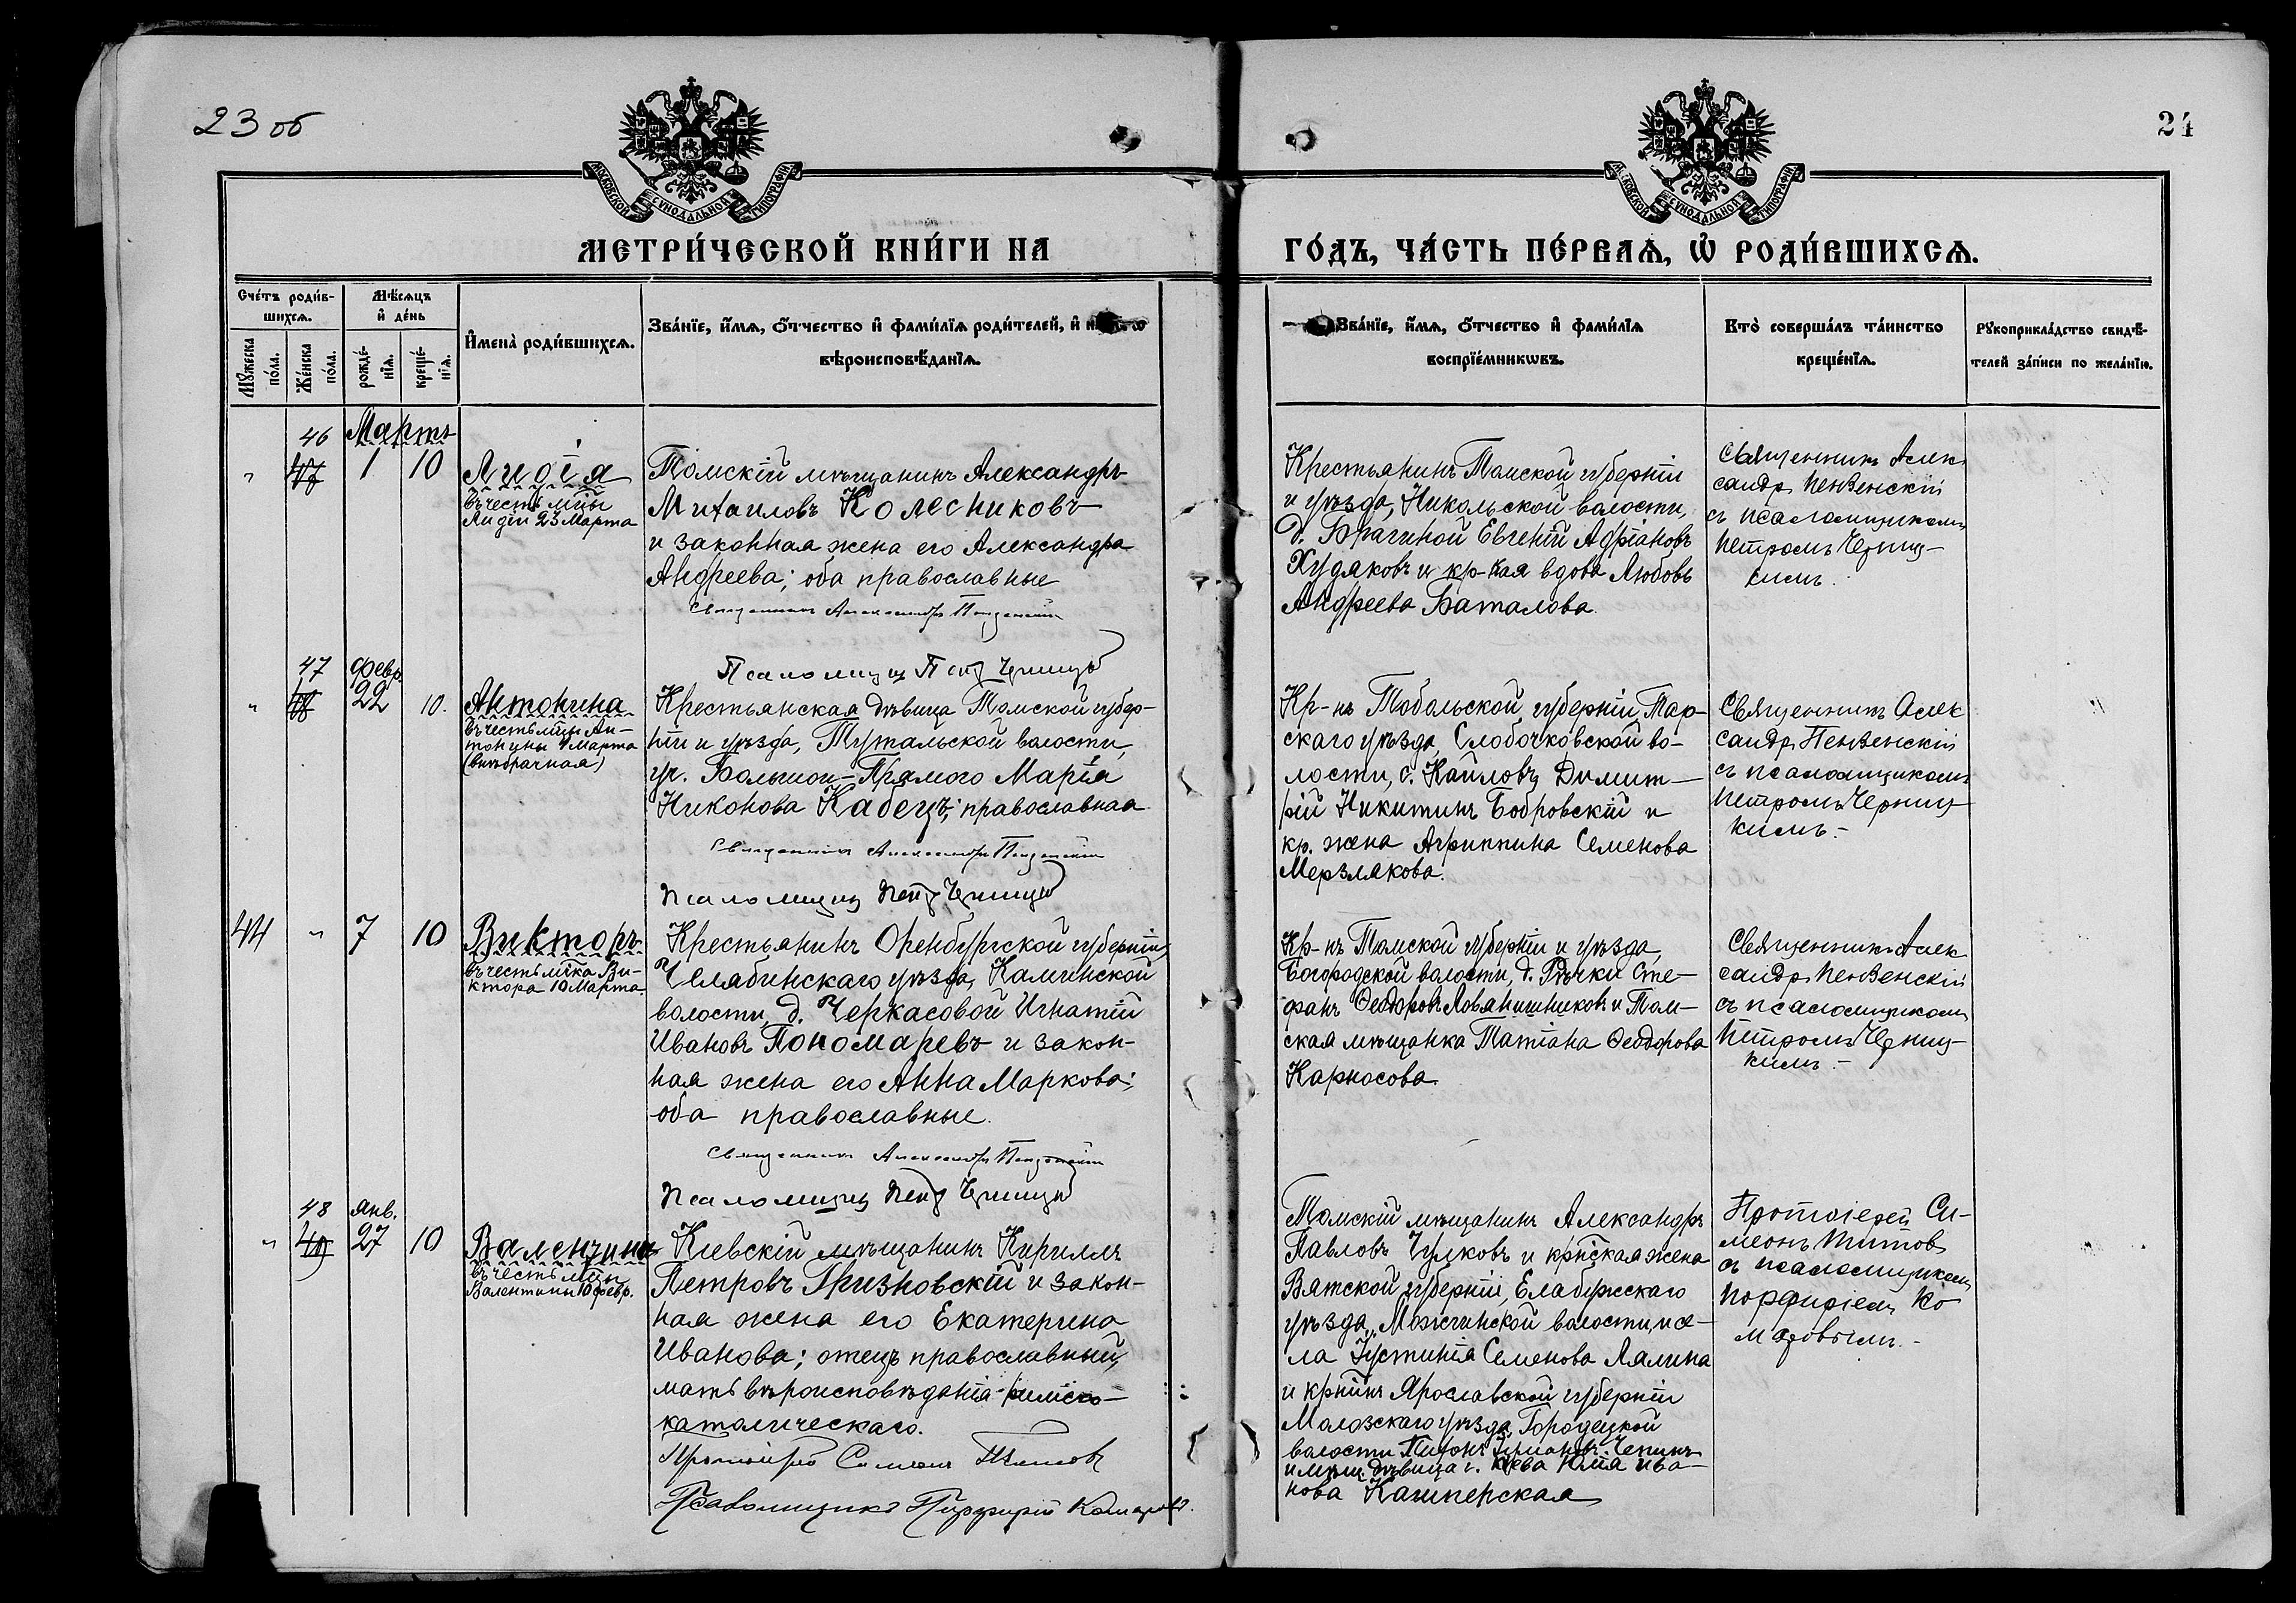 23 об
24
МОСКОВСКОЙ СУНОДАЛЬНОЙ ТИПОГРАФІИ
МОСКОВСКОЙ СУНОДАЛЬНОЙ ТИПОГРАФІИ
МЕТРИ́ЧЕСКОЙ КНИ́ГИ НА
ГО́ДЪ, ЧА́СТЬ ПЕ́РВАѦ, Ѡ҆ РОДИ́ВШИХСѦ.
Сче́тъ роди́в-
шихсѧ.
Мꙋ́жеска
по́ла.
Же́нска
по́ла.
Мѣ́сѧцъ
и҆ де́нь
рожде́-
нїѧ.
креще́-
нїѧ.
И҆мена̀ роди́вшихсѧ.
Зва́нїе, и҆́мѧ, ѻ҆́тчество и҆ фами́лїѧ роди́телей, и҆
вѣроисповѣ́данїѧ.
Зва́нїе, и҆́мѧ, ѻ҆́тчество и҆ фами́лїѧ
воспрїе́мникѡвъ.
Кто̀ соверша́лъ та́инство
креще́нїѧ.
Рꙋкоприкла́дство свидѣ́-
телей за́писи по жела́нїю.
46 Мартъ
" 1 10
Лидія
въ честь мцы
Лидіи 23 Марта
Томскій мѣщанинъ Александръ
Михаиловъ Колесниковъ
и законная жена его Александра
Андреева; оба православные
Священникъ Александръ Пензенскій
Псаломщик Петр Черницкій
Крестьянинъ Томской губерніи
и уѣзда, Никольской волости,
д. Брагиной Евгеній Адріановъ
Худяковъ и кр-кая вдова Любовь
Андреева Баталова.
Священникъ Алек
сандръ Пензенскій
съ псаломщикомъ
Петромъ Черниц-
кимъ.
47 февр.
" 22 10.
Антонина
въ честь мцы Ан-
тонины 1 Марта
(внѣбрачная)
Крестьянская дѣвица Томской губер-
ніи и уѣзда, Тутальской волости,
уч. Большой-Прямого Марія
Никонова Кабецъ; православная
Священникъ Александръ Пензенскій
Псаломщик Петр Черницкій
Кр-нъ Тобольской губерніи, Тар-
скаго уѣзда, Слободчковской во-
лости, с. Кайловъ Димит-
рій Никитинъ Бобровскій и
кр. жена Агриппина Семенова
Мерзлякова.
Священникъ Алек
сандръ Пензенскій
съ псаломщикомъ
Петромъ Черниц-
кимъ.-
44 " 7 10
Викторъ
въ честь мчка Ви-
ктора 10 Марта.
Крестьянинъ Оренбургской губерніи,
Челябинскаго уѣзда, Каминской
волости, д. Черкасовой Игнатій
Ивановъ Пономаревъ и закон-
ная жена его Анна Маркова;
оба православные.
Священникъ Александръ Пензенскій
Псаломщик Петр Черницкій
Кр-нъ Томской губерніи и уѣзда,
Богородской волости, д. Рѣчки Сте-
фанъ Ѳеодоровъ и Том-
ская мѣщанка Татіана Ѳеодорова
Карносова.
Священникъ Алек
сандръ Пензенскій
съ псаломщикомъ
Петромъ Черниц-
кимъ.-
48 янв.
" 27 10
Валентина
въ честь мцы
Валентины 10 февр.
Кіевскій мѣщанинъ Кириллъ
Петровъ Гризновскій и закон-
ная жена его Екатерина
Иванова; отецъ православный,
мать вѣроисповѣданія римско-
католическаго.
Протоіерей Симеонъ Титовъ
Псаломщикъ Порфирій Комаровъ.
Томскій мѣщанинъ Александръ
Павловъ Чулковъ и крпская жена
Вятской губерніи, Елабужскаго
уѣзда, Можгинской волости, и се-
ла Іустинія Семенова Лялина
и крнинъ Ярославской губерніи
Мологскаго уѣзда, Городецкой
волости
и мѣщ. дѣвица г. Кіева Юлія Ива-
нова Кашперская
Протоіерей Си-
меонъ Титовъ
съ псаломщикомъ
Порфиріемъ Ко
маровымъ.-